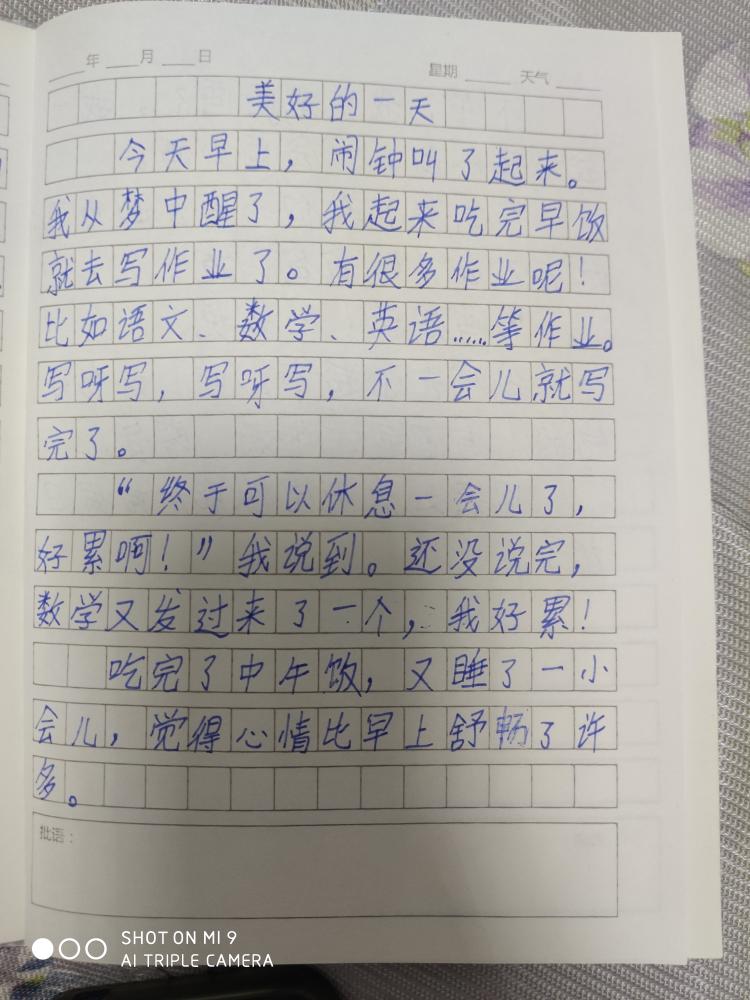 年 月 日 星期 天气
美好的一天
今天早上，闹钟叫了起来。
我从梦中醒了，我起来吃完早饭
就去写作业了。有很多作业呢！
比如语文、数学、英语……等作业。
写呀写，写呀写，不一会儿就写
完了。
“终于可以休息一会儿了，
好累啊！”我说到。还没说完，
数学又发过来了一个，我好累！
吃完了中午饭，又睡了一小
会儿，觉得心情比早上舒畅了许
多。
批语：
SHOT ON MI 9
AI TRIPLE CAMERA